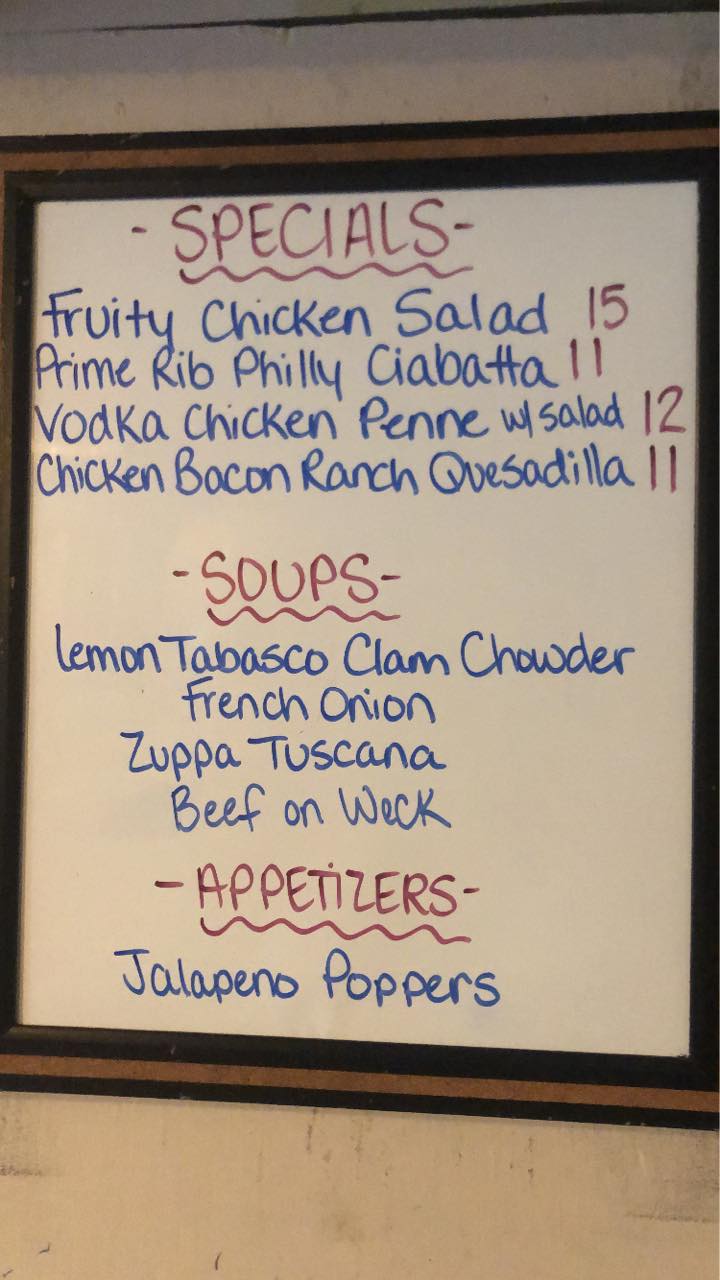 - SPECIALS-
Fruity Chicken Salad 15
Prime Rib Philly Ciabatta 11
Vodka Chicken Penne w/ salad 12
Chicken Bacon Ranch Quesadilla 11
-SOUPS-
Lemon Tabasco Clam Chowder
French Onion
Zuppa Tuscana
Beef on Weck
- APPETIZERS-
Jalapeno Poppers